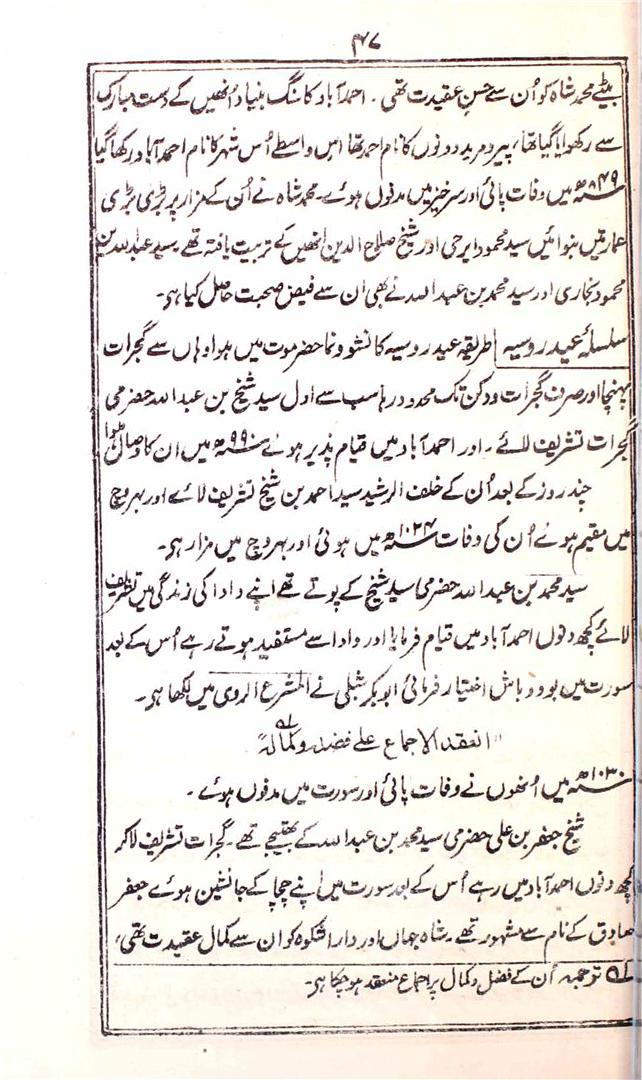 ۴۷
بیٹے محمد شاہ کو اُن سے حسن عقیدت تھی۔ احمد آباد کا سنگ بنیاد اُنھیں کے دست مبارک
سے رکھوایا گیا تھا، پیر و مرید دونوں کا نام احمد تھا اس واسطے اُس شہر کا نام احمد آباد رکھا گیا
۸۴۹ھ میں وفات پائی اور سرخیز میں مدفون ہوئے۔ محمد شاہ نے اُن کے مزار پر بڑی بڑی
عمارتیں بنوائیں سید محمود ایرجی اور شیخ صلاح الدین انھیں کے تربیت یافتہ تھے۔ سید عبداللہ بن
محمود بخاری اور سید محمد بن عبد اللہ نے بھی ان سے فیض صحبت حاصل کیا ہی۔
سلسلۂ عیدروسیہ طریقہ عیدروسیہ کا نشو و نما حضرموت میں ہوا وہاں سے گجرات
پہنچا اور صرف گجرات و دکن تک محدود رہا سب سے اول سید شیخ بن عبد اللہ حضرمی
گجرات تشریف لائے۔ اور احمد آباد میں قیام پذیر ہوئے ۹۹۰ھ میں ان کا وصال ہوا
چند روز کے بعد اُن کے خلف الرشید سید احمد بن شیخ تشریف لائے اور بھروچ
میں مقیم ہوئے اُن کی وفات ۱۰۲۴ھ میں ہوئی اور بھروچ میں مزار ہی۔
سید محمد بن عبد اللہ حضرمی سید شیخ کے پوتے تھے اپنے دادا کی زندگی میں تشریف
لائے کچھ دنوں احمد آباد میں قیام فرمایا اور دادا سے مستفید ہوتے رہے اُس کے بعد
سورت میں بود و باش اختیار فرمائی ابو بکر شبلی نے المشرع الروی میں لکھا ہی۔
"انعقد الاجماع علی فضلہ و کمالہ" لہ
۱۰۳۰ھ میں اُنھوں نے وفات پائی اور سورت میں مدفون ہوئے۔
شیخ جعفر بن علی حضرمی سید محمد بن عبد اللہ کے بھتیجے تھے۔ گجرات تشریف لاکر
کچھ دنوں احمد آباد میں رہے اُس کے بعد سورت میں اپنے چچا کے جانشین ہوئے جعفر
صادق کے نام سے مشہور تھے۔ شاہ جہاں اور داراشکوہ کو ان سے کمال عقیدت تھی،
لہ ترجمہ اُن کے فضل و کمال پر اجماع منعقد ہو چکا ہی۔